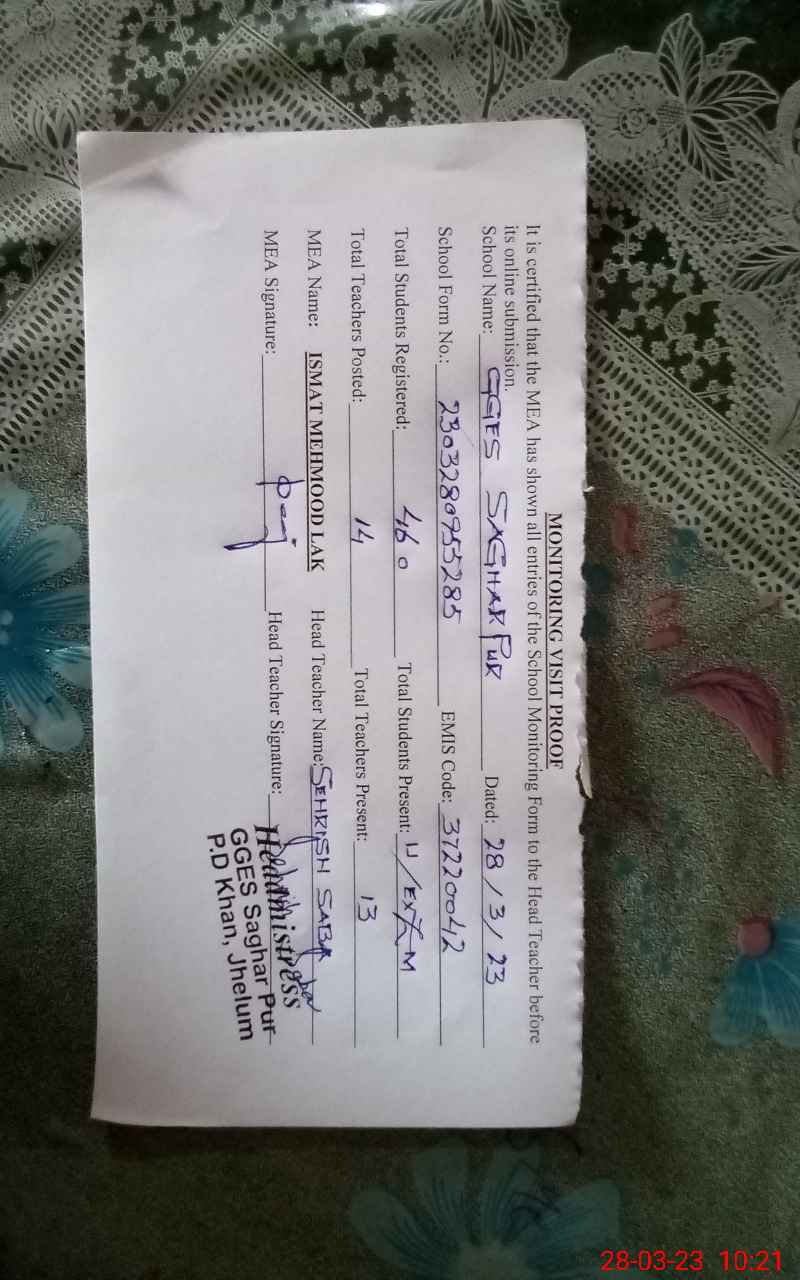 MONITORING VISIT PROOF
It is certified that the MEA has shown all entries of the School Monitoring Form to the Head Teacher before
its online submission.
School Name: GGES SAGHAR PUR Dated: 28/3/23
School Form No.: 2303280955285 EMIS Code: 37220042
Total Students Registered: 460 Total Students Present: U/EXAM
Total Teachers Posted: 14 Total Teachers Present: 13
MEA Name: ISMAT MEHMOOD LAK Head Teacher Name: SEHRISH SABA
MEA Signature: Head Teacher Signature:
Headmistress
GGES Saghar Pur
P.D Khan, Jhelum
28-03-23 10:21